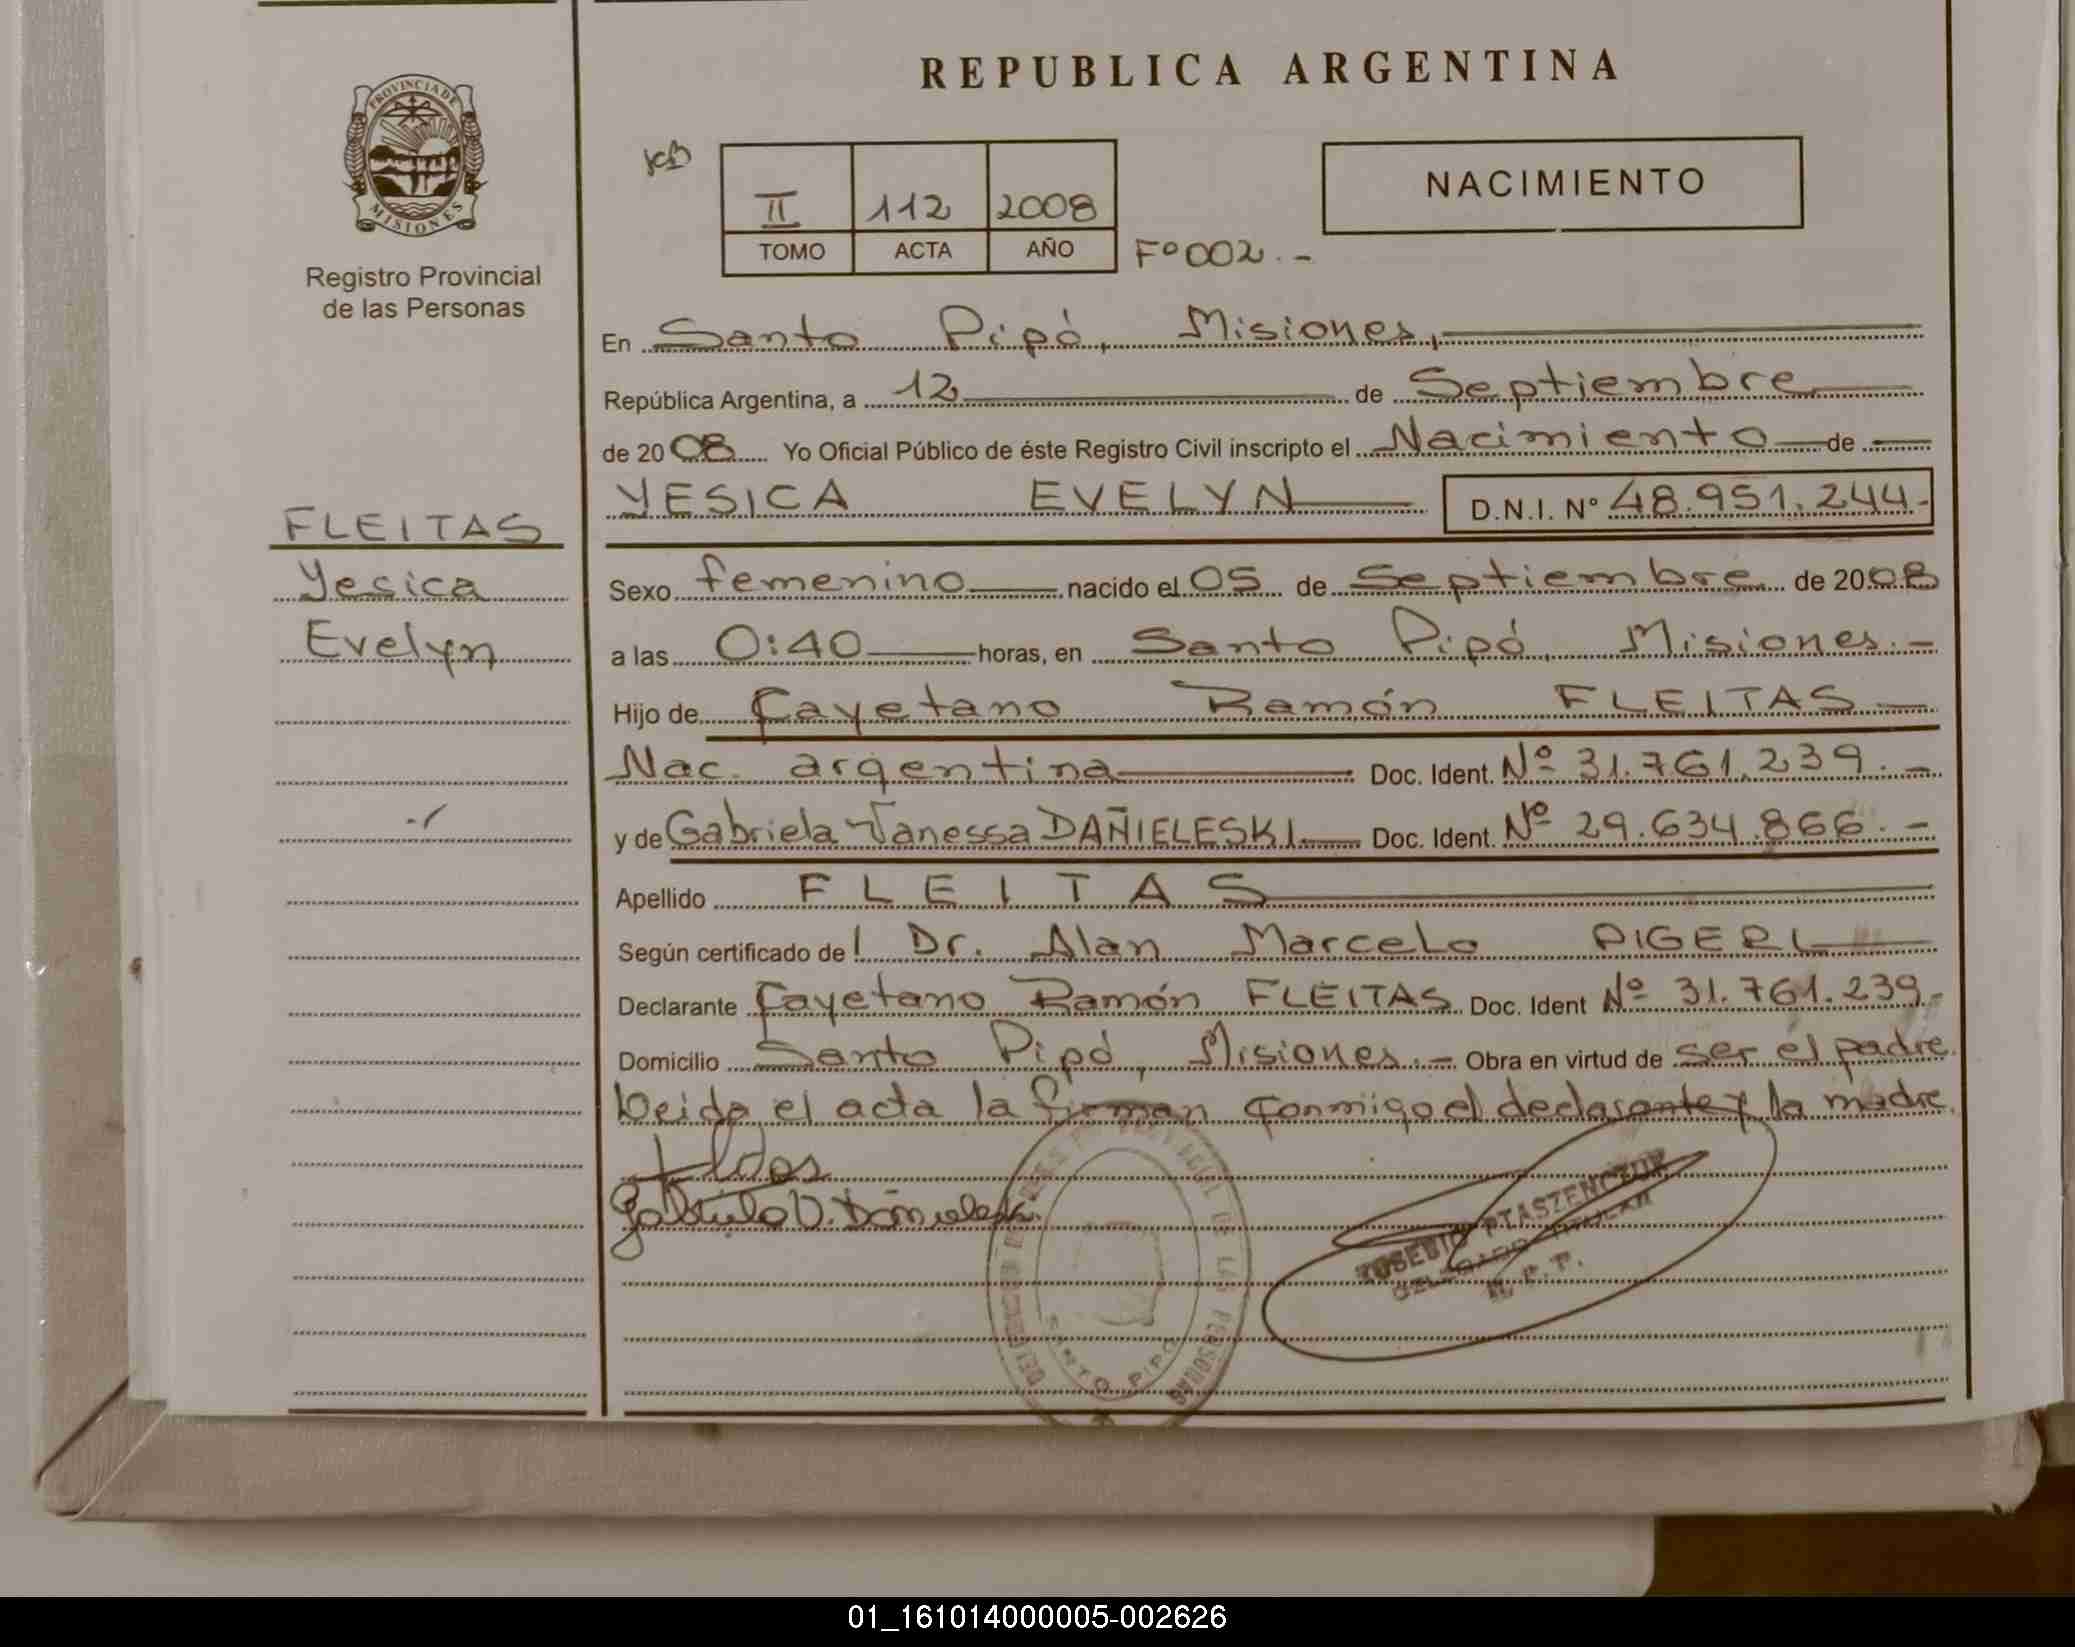 REPUBLICA ARGENTINA
PROVINCIA DE MISIONES
Registro Provincial
de las Personas
II 112 2008
TOMO ACTA AÑO
Fº 002.-
NACIMIENTO
En Santo Pipó, Misiones,
República Argentina, a 12 de Septiembre
de 2008 Yo Oficial Público de éste Registro Civil inscripto el Nacimiento de
YESICA EVELYN D.N.I. Nº 48.951.244.-
FLEITAS
Yesica
Evelyn
Sexo femenino nacido el 05 de Septiembre de 2008
a las 0:40 horas, en Santo Pipó, Misiones.-
Hijo de Cayetano Ramón FLEITAS
Nac. argentina Doc. Ident. Nº 31.761.239.-
y de Gabriela Vanessa DAÑIELESKI Doc. Ident. Nº 29.634.866.-
Apellido FLEITAS
Según certificado del Dr. Alan Marcelo PIGERL
Declarante Cayetano Ramón FLEITAS Doc. Ident Nº 31.761.239.-
Domicilio Santo Pipó, Misiones.- Obra en virtud de ser el padre.
Leida el acta la firman conmigo el declarante y la madre.
Gabriela V. Dañieleski
SANTO PIPO
EUSEBIO PTASZENCZUK
DELEGADO TITULAR
R. P. P.
01_161014000005-002626